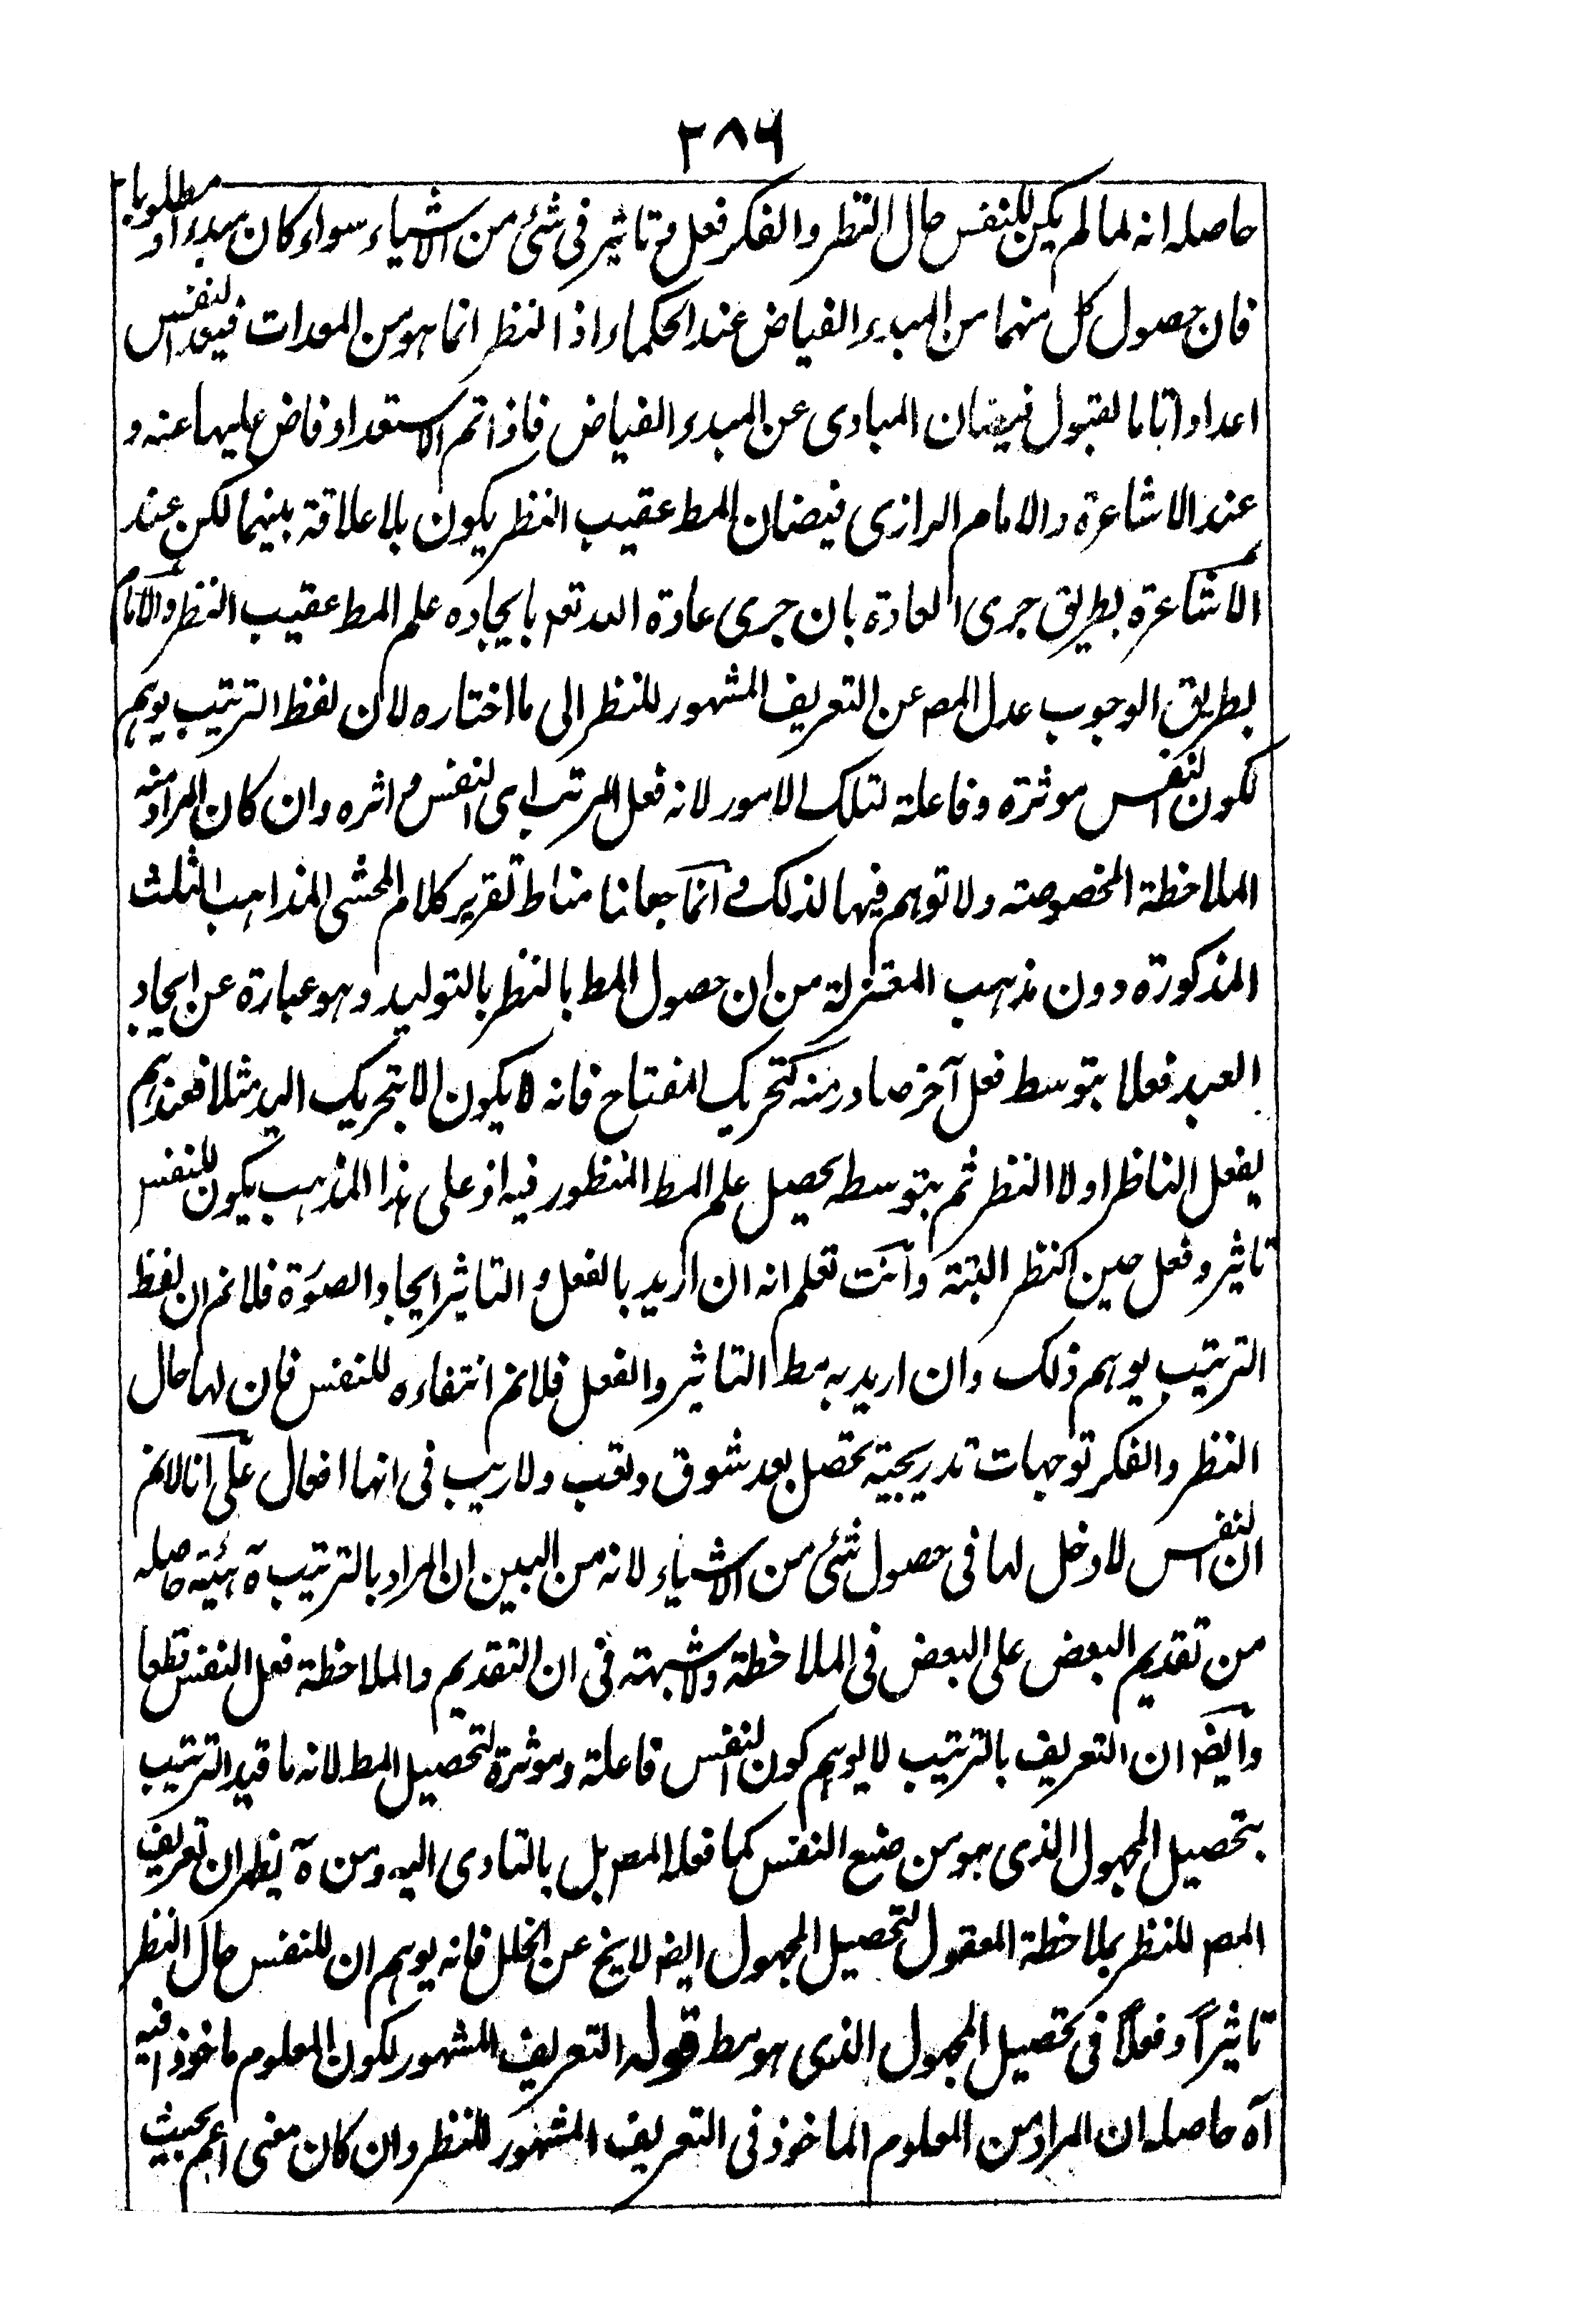 ۲۸۶
حاصله انه لما لم يكن للنفس حال النظر والفكر فعل و تاثير فى شئ من الاشياء سواء كان مبدء او مطلوبا
فان حصول كل منهما من المبدء الفياض عند الحكماء اذ النظر انما هو من المعدات فيعد النفس
اعدادا تاما لقبول فيضان المبادى عن المبدء الفياض فاذا تم الاستعداد فاض عليها عنه و
عند الاشاعرة والامام الرازى فيضان المط عقيب النظر يكون بلا علاقة بينهما لكن عند
الاشاعرة بطريق جرى العادة بان جرى عادة الله تعه بايجاده علم المط عقيب النظر والامام
بطريق الوجوب عدل المص عن التعريف المشهور للنظر الى ما اختاره لان لفظ الترتيب يوهم
لكون النفس موثرة وفاعلة لتلك الامور لانه فعل المرتب اى النفس و اثره وان كان المراد منه
الملاحظة المخصوصة ولا توهم فيها لذلك و انما جعلنا مناط تقرير كلام المحشى المذاهب الثلث
المذكورة دون مذهب المعتزلة من ان حصول المط بالنظر بالتوليد وهو عبارة عن ايجاد
العبد فعلا بتوسط فعل آخر صادر منه كتحريك المفتاح فانه لا يكون الا بتحريك اليد مثلا فعندهم
يفعل الناظر اولا النظر ثم بتوسطه يحصل علم المط المنظور فيه اذ على هذا المذهب يكون للنفس
تاثير وفعل حين النظر البتة وانت تعلم انه ان اريد بالفعل و التاثير ايجاد الصورة فلا نم ان لفظ
الترتيب يوهم ذلك وان اريد به مط التاثير والفعل فلا نم انتفاءه للنفس فان لها حال
النظر والفكر توجهات تدريجية تحصل بعد شوق وتعب ولا ريب فى انها افعال على انا لا نم
ان النفس لا دخل لها فى حصول شئ من الاشياء لانه من البين ان المراد بالترتيب ة هيئة حاصلة
من تقديم البعض على البعض فى الملاحظة ولا شبهة فى ان التقديم والملاحظة فعل النفس قطعا
وايضا ان التعريف بالترتيب لا يوهم كون النفس فاعلة وموثرة لتحصيل المط لانه ما قيد الترتيب
بتحصيل المجهول الذى هو من صنع النفس كما فعله المص بل بالتادى اليه ومن ة يظهر ان تعريف
المص للنظر بملاحظة المعقول لتحصيل المجهول ايضا لا يخ عن الخلل فانه يوهم ان للنفس حال النظر
تاثيراً وفعلاً فى تحصيل المجهول الذى هو مط قوله التعريف المشهور لكون المعلوم ماخوذا فيه
آه حاصله ان المراد من المعلوم الماخوذ فى التعريف المشهور للنظر وان كان معنى اعم بحيث